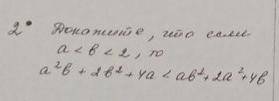 2° Докажите, что если
a < b < 2, то
a²b + 2b² + 4a < ab² + 2a² + 4b